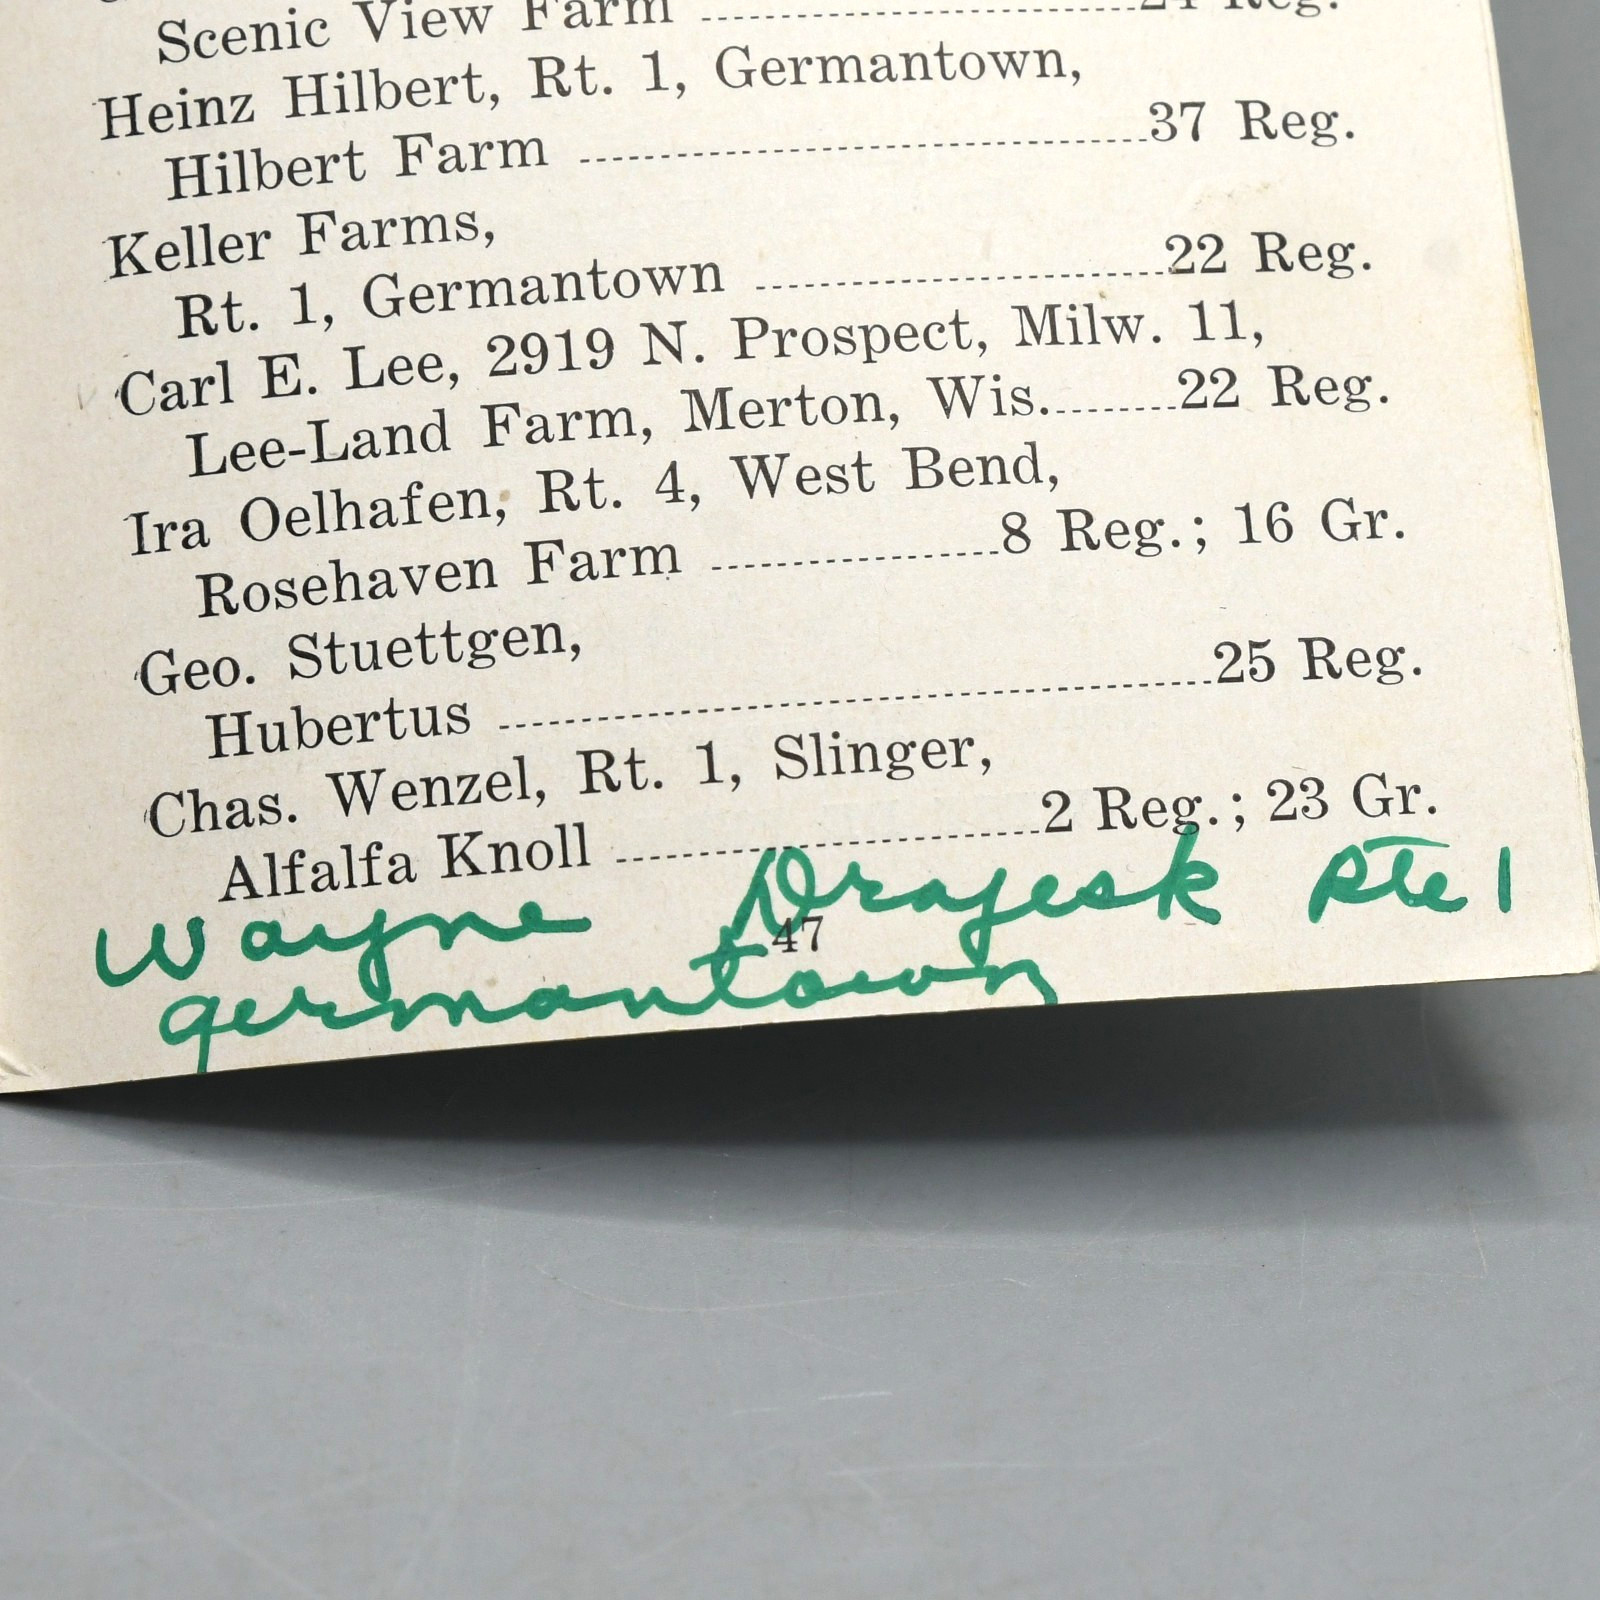 Scenic View Farm ........ 24 Reg.
Heinz Hilbert, Rt. 1, Germantown,
Hilbert Farm ........ 37 Reg.
Keller Farms,
Rt. 1, Germantown ........ 22 Reg.
Carl E. Lee, 2919 N. Prospect, Milw. 11,
Lee-Land Farm, Merton, Wis. ........ 22 Reg.
Ira Oelhafen, Rt. 4, West Bend,
Rosehaven Farm ........ 8 Reg.; 16 Gr.
Geo. Stuettgen,
Hubertus ........ 25 Reg.
Chas. Wenzel, Rt. 1, Slinger,
Alfalfa Knoll ........ 2 Reg.; 23 Gr.
Wayne Drajesk Rte 1
47
germantown